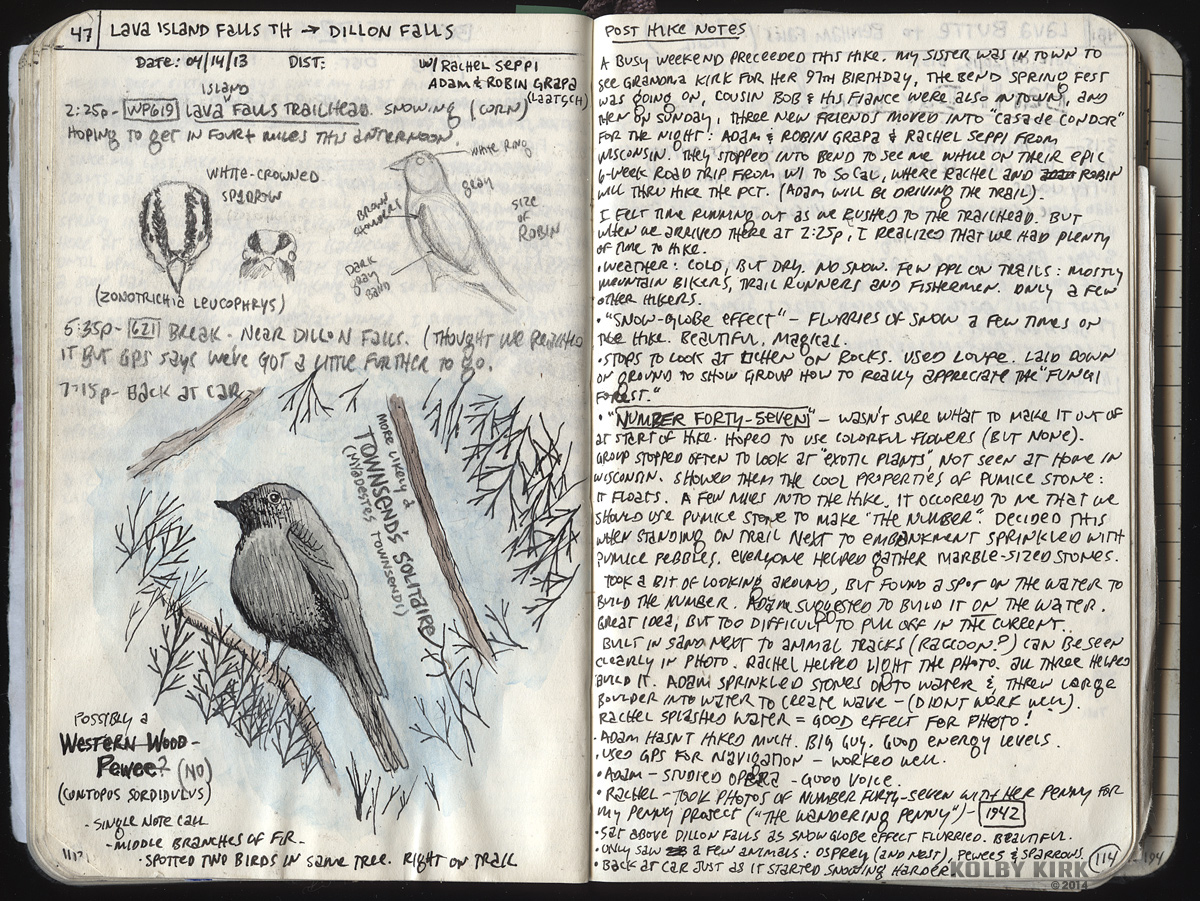 47 LAVA ISLAND FALLS TH → DILLON FALLS
DATE: 04/14/13 DIST: W/ RACHEL SEPPI
ADAM & ROBIN GRAPA
(LAATSCH)
ISLAND
2:25P- WP619 LAVA FALLS TRAILHEAD. SNOWING (CORN)
HOPING TO GET IN FOUR+ MILES THIS AFTERNOON.
WHITE-CROWNED
SPARROW
(ZONOTRICHIA LEUCOPHRYS)
WHITE RING
GRAY
BROWN
SIZE
OF
ROBIN
DARK
GRAY
BAND
5:35P- 621 BREAK. NEAR DILLON FALLS. (THOUGHT WE REACHED
IT BUT GPS SAYS WE'VE GOT A LITTLE FURTHER TO GO.
7:15P- BACK AT CAR
MORE LIKELY A
TOWNSEND'S SOLITAIRE
(MYADESTES TOWNSENDI)
POSSIBLY A
WESTERN WOOD-
PEWEE? (NO)
(CONTOPUS SORDIDULUS)
- SINGLE NOTE CALL
- MIDDLE BRANCHES OF FIR
• SPOTTED TWO BIRDS IN SAME TREE. RIGHT ON TRAIL
POST HIKE NOTES
A BUSY WEEKEND PRECEEDED THIS HIKE. MY SISTER WAS IN TOWN TO
SEE GRANDMA KIRK FOR HER 97TH BIRTHDAY, THE BEND SPRING FEST
WAS GOING ON, COUSIN BOB & HIS FIANCE WERE ALSO IN TOWN, AND
THEN ON SUNDAY, THREE NEW FRIENDS MOVED INTO "CASA DE CONDOR"
FOR THE NIGHT: ADAM & ROBIN GRAPA & RACHEL SEPPI FROM
WISCONSIN. THEY STOPPED INTO BEND TO SEE ME WHILE ON THEIR EPIC
6-WEEK ROAD TRIP FROM WI TO SO CAL, WHERE RACHEL AND ROBIN
WILL THRU HIKE THE PCT. (ADAM WILL BE DRIVING THE TRAIL).
I FELT TIME RUNNING OUT AS WE RUSHED TO THE TRAILHEAD. BUT
WHEN WE ARRIVED THERE AT 2:25P, I REALIZED THAT WE HAD PLENTY
OF TIME TO HIKE.
• WEATHER: COLD, BUT DRY. NO SNOW. FEW PPL ON TRAILS: MOSTLY
MOUNTAIN BIKERS, TRAIL RUNNERS AND FISHERMEN. ONLY A FEW
OTHER HIKERS.
• "SNOW-GLOBE EFFECT" - FLURRIES OF SNOW A FEW TIMES ON
THE HIKE. BEAUTIFUL, MAGICAL.
• STOPS TO LOOK AT LICHEN ON ROCKS. USED LOUPE. LAID DOWN
ON GROUND TO SHOW GROUP HOW TO REALLY APPRECIATE THE "FUNGI
FOREST."
• "NUMBER FORTY-SEVEN" - WASN'T SURE WHAT TO MAKE IT OUT OF
AT START OF HIKE. HOPED TO USE COLORFUL FLOWERS (BUT NONE).
GROUP STOPPED OFTEN TO LOOK AT "EXOTIC PLANTS", NOT SEEN AT HOME IN
WISCONSIN. SHOWED THEM THE COOL PROPERTIES OF PUMICE STONE:
IT FLOATS. A FEW MILES INTO THE HIKE, IT OCCORED TO ME THAT WE
SHOULD USE PUMICE STONE TO MAKE "THE NUMBER". DECIDED THIS
WHEN STANDING ON TRAIL NEXT TO EMBANKMENT SPRINKLED WITH
PUMICE PEBBLES. EVERYONE HELPED GATHER MARBLE-SIZED STONES.
TOOK A BIT OF LOOKING AROUND, BUT FOUND A SPOT ON THE WATER TO
BUILD THE NUMBER. ADAM SUGGESTED TO BUILD IT ON THE WATER.
GREAT IDEA, BUT TOO DIFFICULT TO PULL OFF IN THE CURRENT.
BUILT IN SAND NEXT TO ANIMAL TRACKS (RACCOON?) CAN BE SEEN
CLEARLY IN PHOTO. RACHEL HELPED LIGHT THE PHOTO. ALL THREE HELPED
BUILD IT. ADAM SPRINKLED STONES ONTO WATER & THREW LARGE
BOULDER INTO WATER TO CREATE WAVE - (DIDN'T WORK WELL).
RACHEL SPLASHED WATER = GOOD EFFECT FOR PHOTO!
• ADAM HASN'T HIKED MUCH. BIG GUY. GOOD ENERGY LEVELS.
• USED GPS FOR NAVIGATION - WORKED WELL.
• ADAM - STUDIED OPERA - GOOD VOICE.
• RACHEL - TOOK PHOTOS OF NUMBER FORTY-SEVEN WITH HER PENNY FOR
MY PENNY PROJECT ("THE WANDERING PENNY") - 1942
• SAT ABOVE DILLON FALLS AS SNOW GLOBE EFFECT FLURRIED. BEAUTIFUL.
• ONLY SAW A FEW ANIMALS: OSPREY (AND NEST), PEWEES & SPARROWS.
• BACK AT CAR JUST AS IT STARTED SNOWING HARDER
114
KOLBY KIRK
© 2014